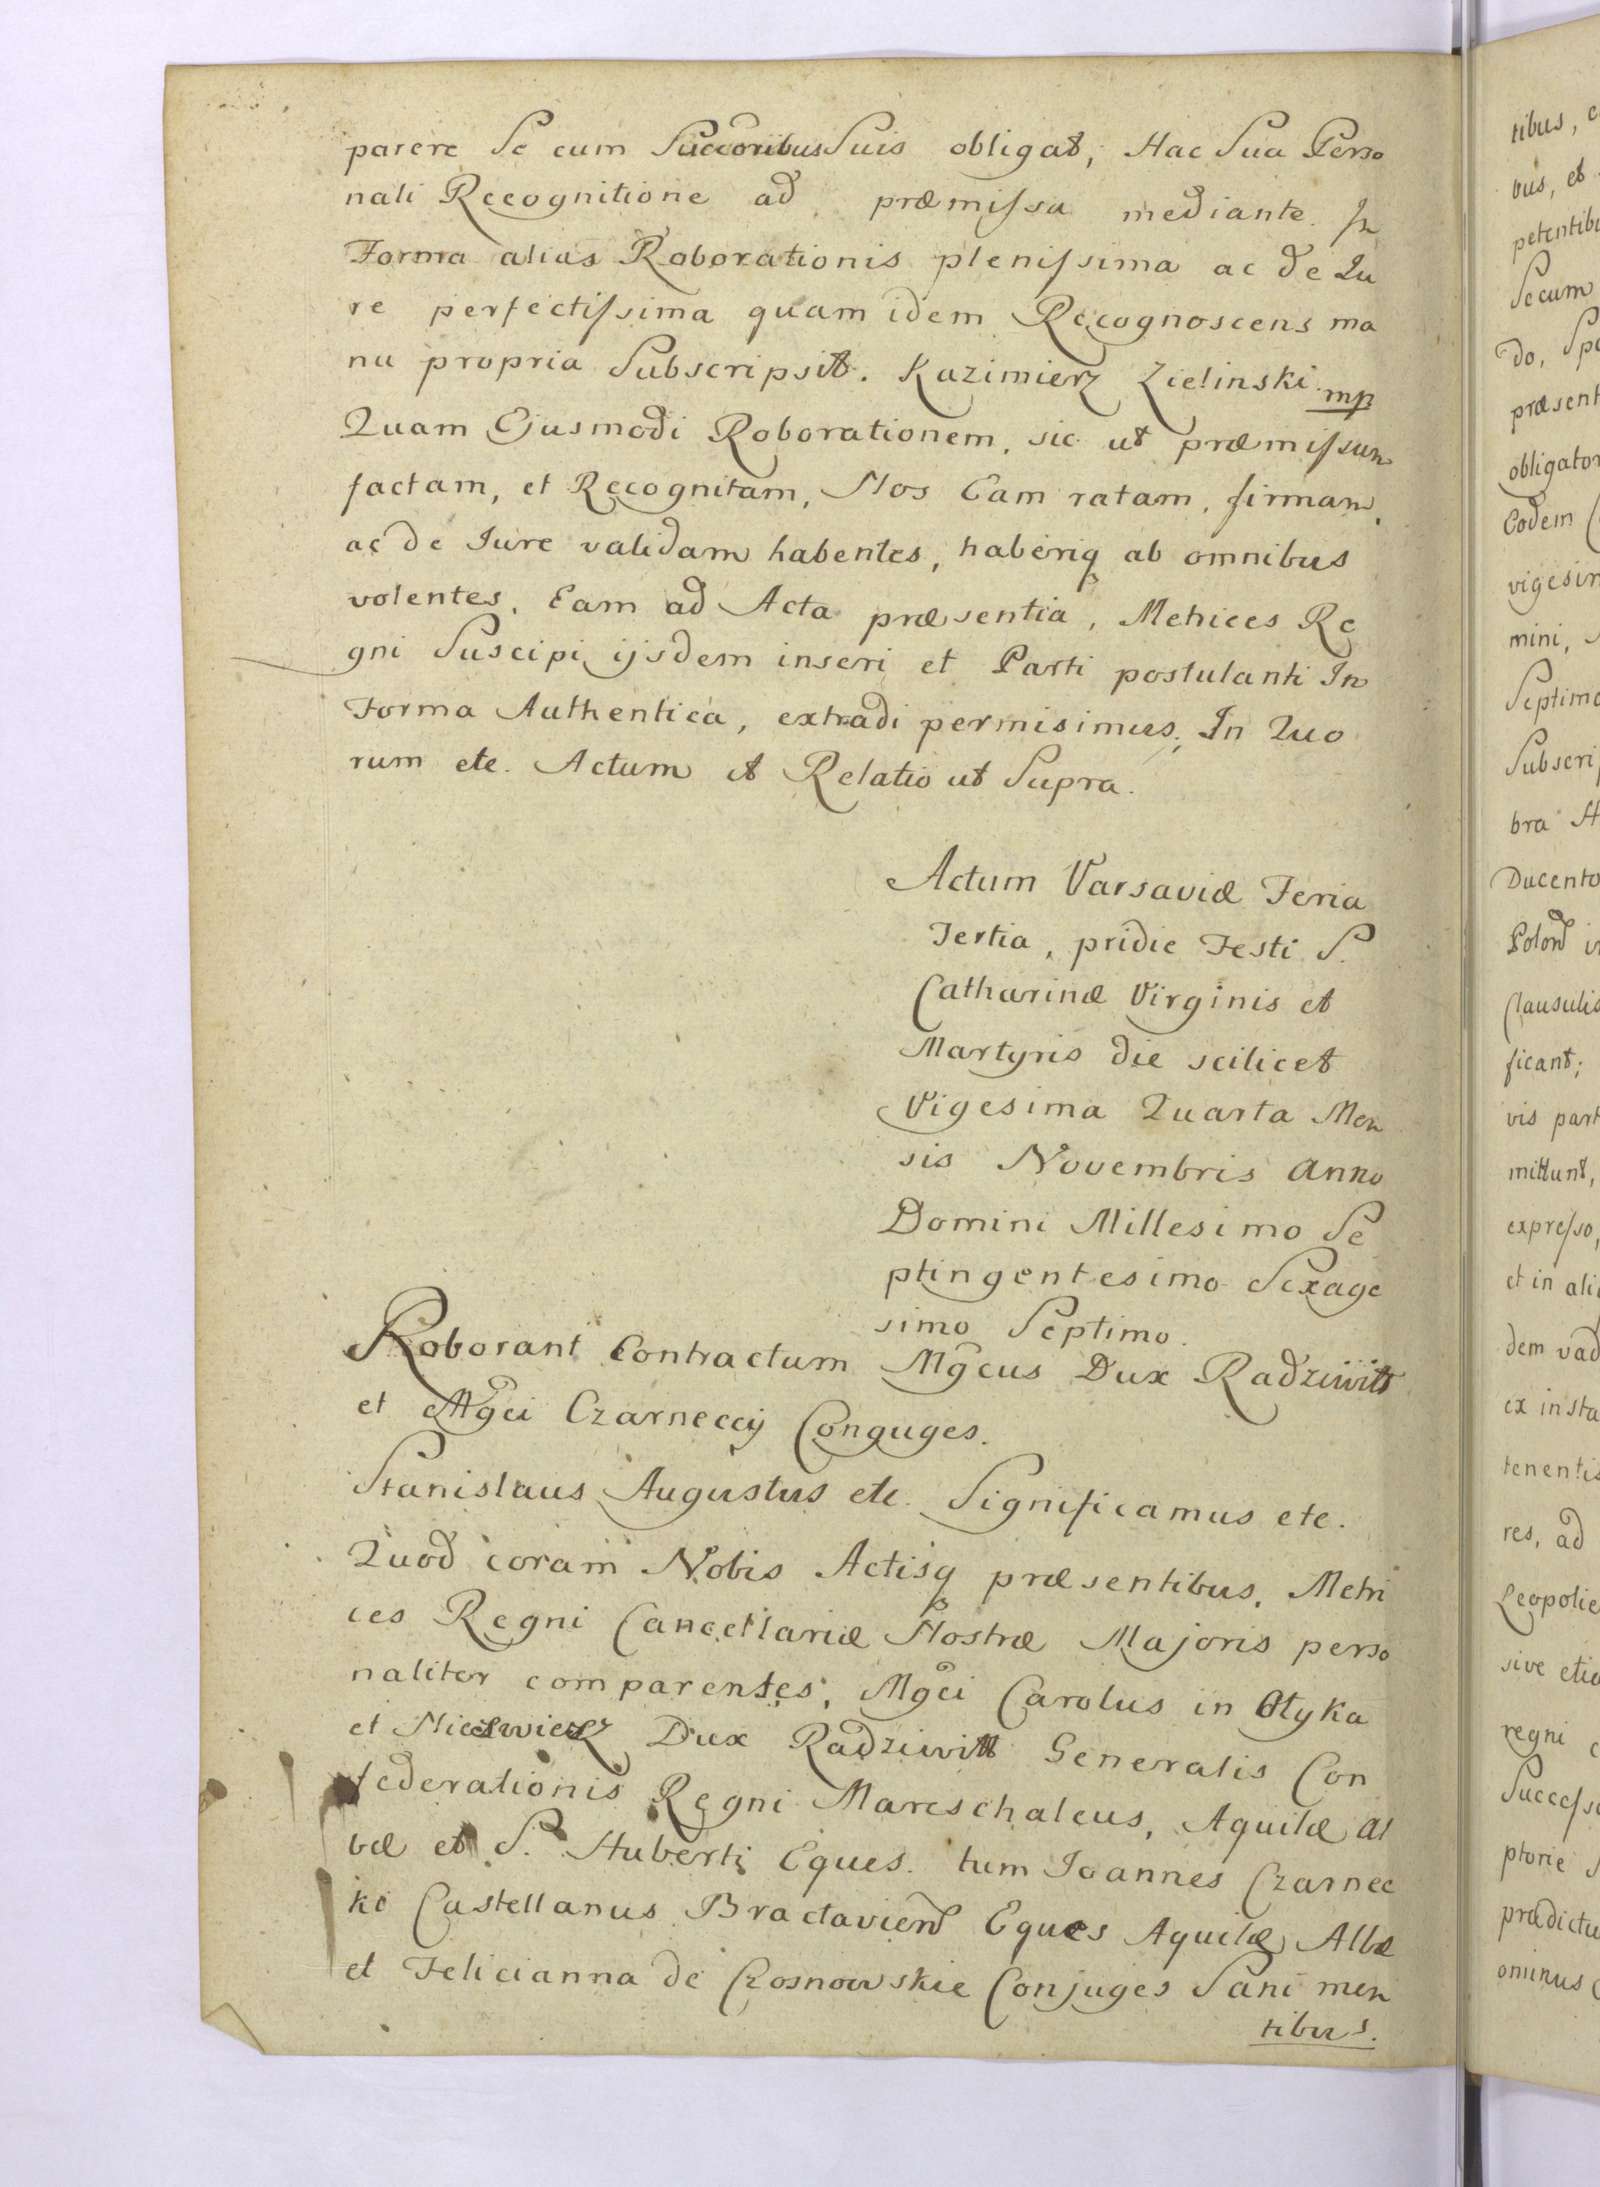 parere Se cum Succoribus Suis obligat, Hac Sua Perso
nali Recognitione ad præmissa mediante. In
Forma alias Roborationis plenissima ac de Iu
re perfectissima quam idem Recognoscens ma
nu propria Subscripsit. Kazimierz Zielinski mp
Quam Ejusmodi Roborationem, sic ut præmissum
factam, et Recognitam, Nos Eam ratam, firmam,
ac de Iure validam habentes, haberiq ab omnibus
volentes, Eam ad Acta præsentia, Metrices Re
gni Suscipi ijsdem inseri et Parti postulanti In
Forma Authentica, extradi permisimus; In Quo
rum etc. Actum et Relatio ut Supra.
Actum Varsaviæ Feria
Tertia, pridie Festi S.
Catharinæ Virginis et
Martyris die scilicet
Vigesima Quarta Men
sis Novembris Anno
Domini Millesimo Se
ptingentesimo Sexage
simo Septimo.
Roborant Contractum Mgcus Dux Radziwiłł
et Mgci Czarneccy Conguges.
Stanislaus Augustus etc. Significamus etc.
Quod coram Nobis Actisq præsentibus, Metri
ces Regni Cancellariæ Nostræ Majoris perso
naliter comparentes, Mgci Carolus in Ołyka
et Nieswiesz Dux Radziwiłł Generalis Con
federationis Regni Mareschalcus, Aquilæ Al
bæ et S. Huberti Eques. tum Joannes Czarnec
ki Castellanus Bractavien Eques Aquilæ Albæ
et Felicianna de Czosnowskie Conjuges Sani men
tibus.
tibus,
bus, et
Secum
do,
obligator
Codem
mini,
Septimo
bra
Ducento
Polon
Clausulis
ficant;
vis part
mittunt,
expresso,
et in ali
dem vad
ex insta
tenentis
res, ad
Leopolie
sive etia
regni
Successo
ptorie
prædictu
ominus